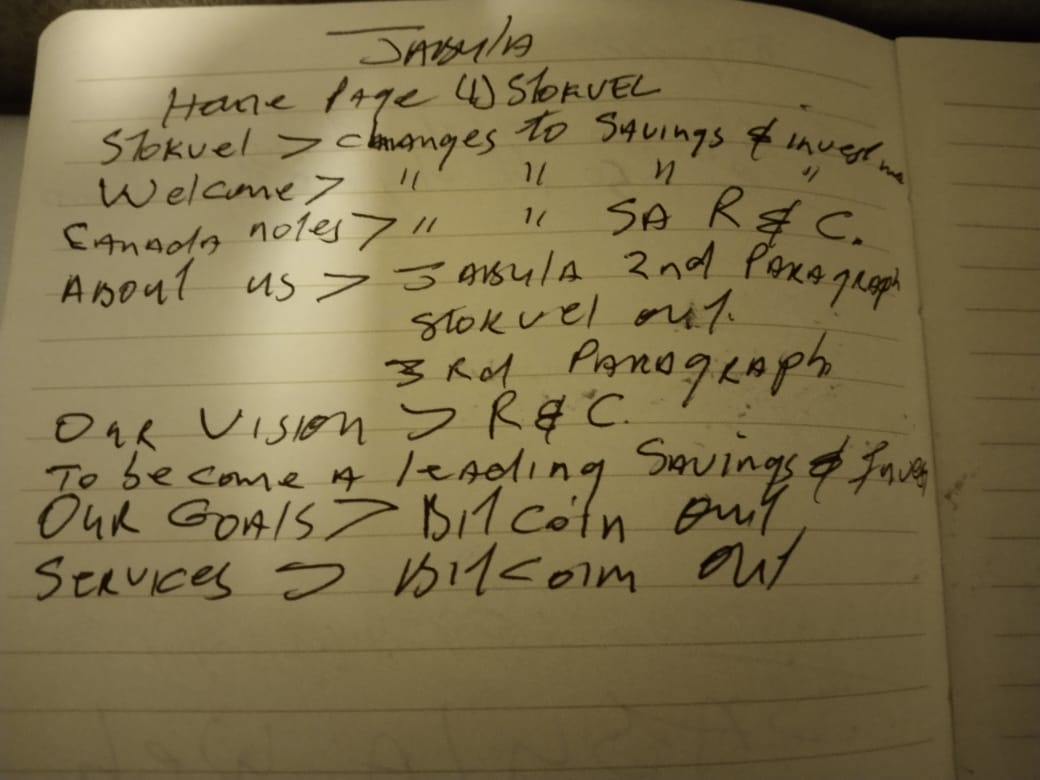 JABULA
Home Page (1) STOKVEL
Stokvel > changes to Savings & investme
Welcome > " " " "
CANADA notes > " " SA R & C.
ABOUT us > JABULA 2nd PARAgraph
Stokvel out.
3Rd PARAgRAph
OUR VISION > R & C.
To become A leading Savings & Inves
OUR GOALS > Bitcoin out
Services > Bitcoin out